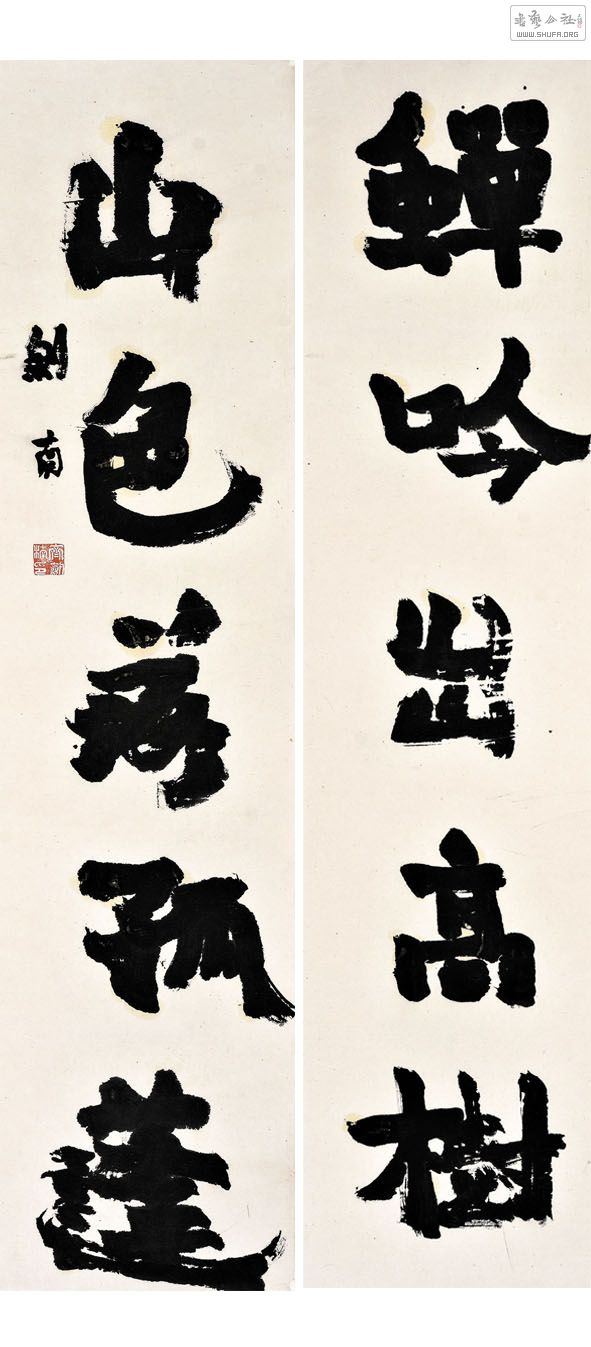 書藝公社
WWW.SHUFA.ORG
蟬吟出高樹
山色落孤蓬
劍南